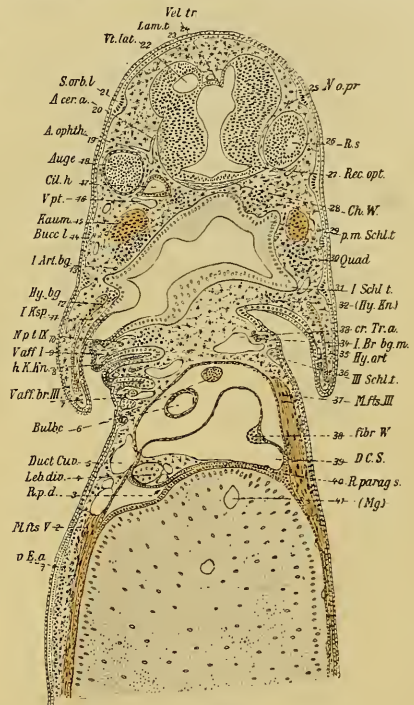 Vel tr
Lam.t 24
Vt. lat. 23
22
S.orb. l 21
A cer. a. 20
A. ophth. 19
Auge 18
Cil. h 17
Vpt. 16
Kaum. 15
Bucc l. 14
I Art. bg 13
Hy. bg 12
I Ksp. 11
N p t IX 10
Vaff I 9
h.K.Kn. 8
Vaff. br III 7
Bulb.c 6
Duct Cuv. 5
Leb div. 4
R. p. d. 3
M.fts V 2
v E. a
25 N o. pr
26 R. s
27. Rec. opt.
28 Ch. W.
29 p. m Schl. t
30 Quad
31 I Schl t.
32 (Hy. Kn.)
33 cr. Tr. a.
34 I. Br bg. m.
35 Hy. art
36 III Schl. t.
37 M.fts. III
38 fibr W
39 D C. S.
40 R. parag s.
41 (Mg)